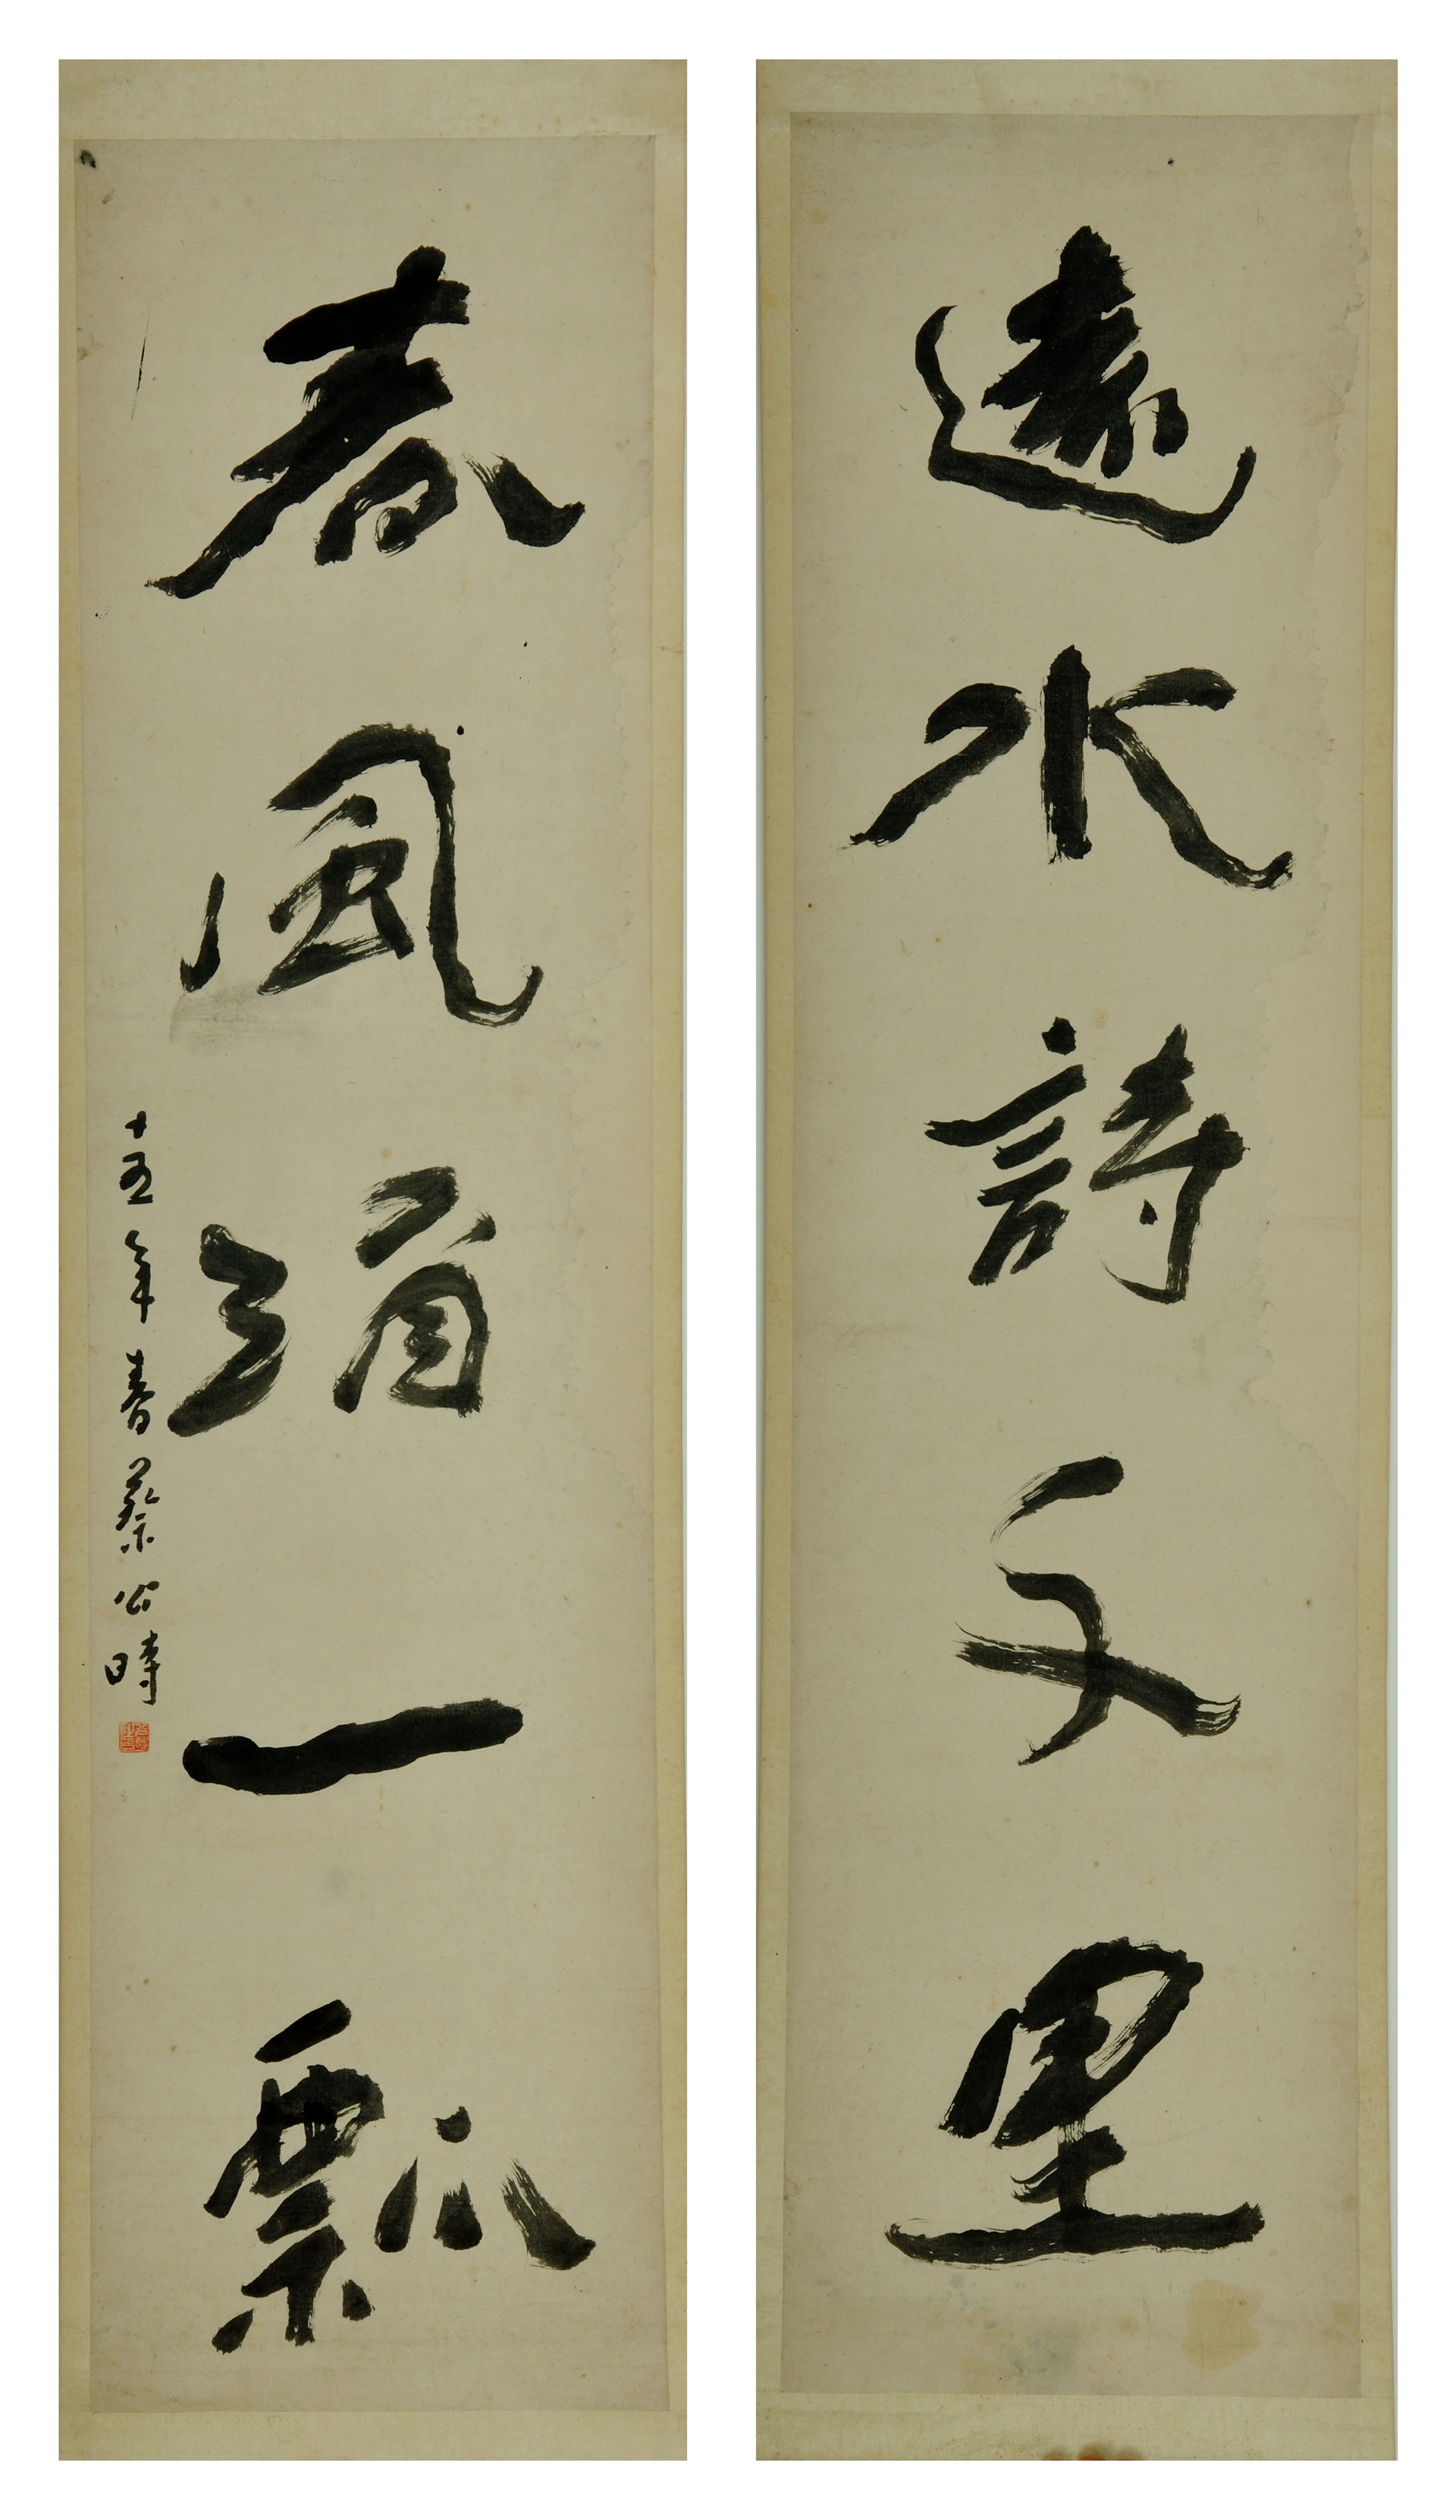 遠水詩千里
春風酒一瓢
十五年春蔡公時